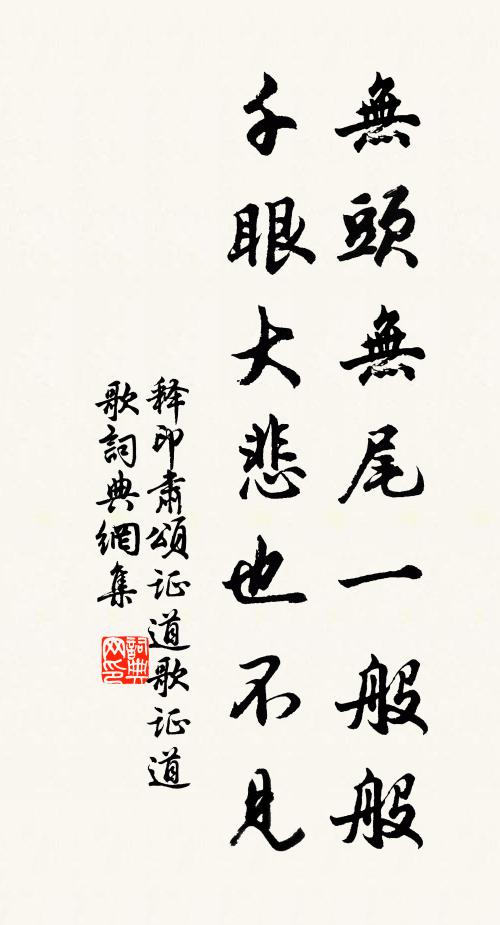 無頭無尾一般般
千眼大悲也不見
释印肃頌证道歌证道
歌詞典網集
詞典
网印